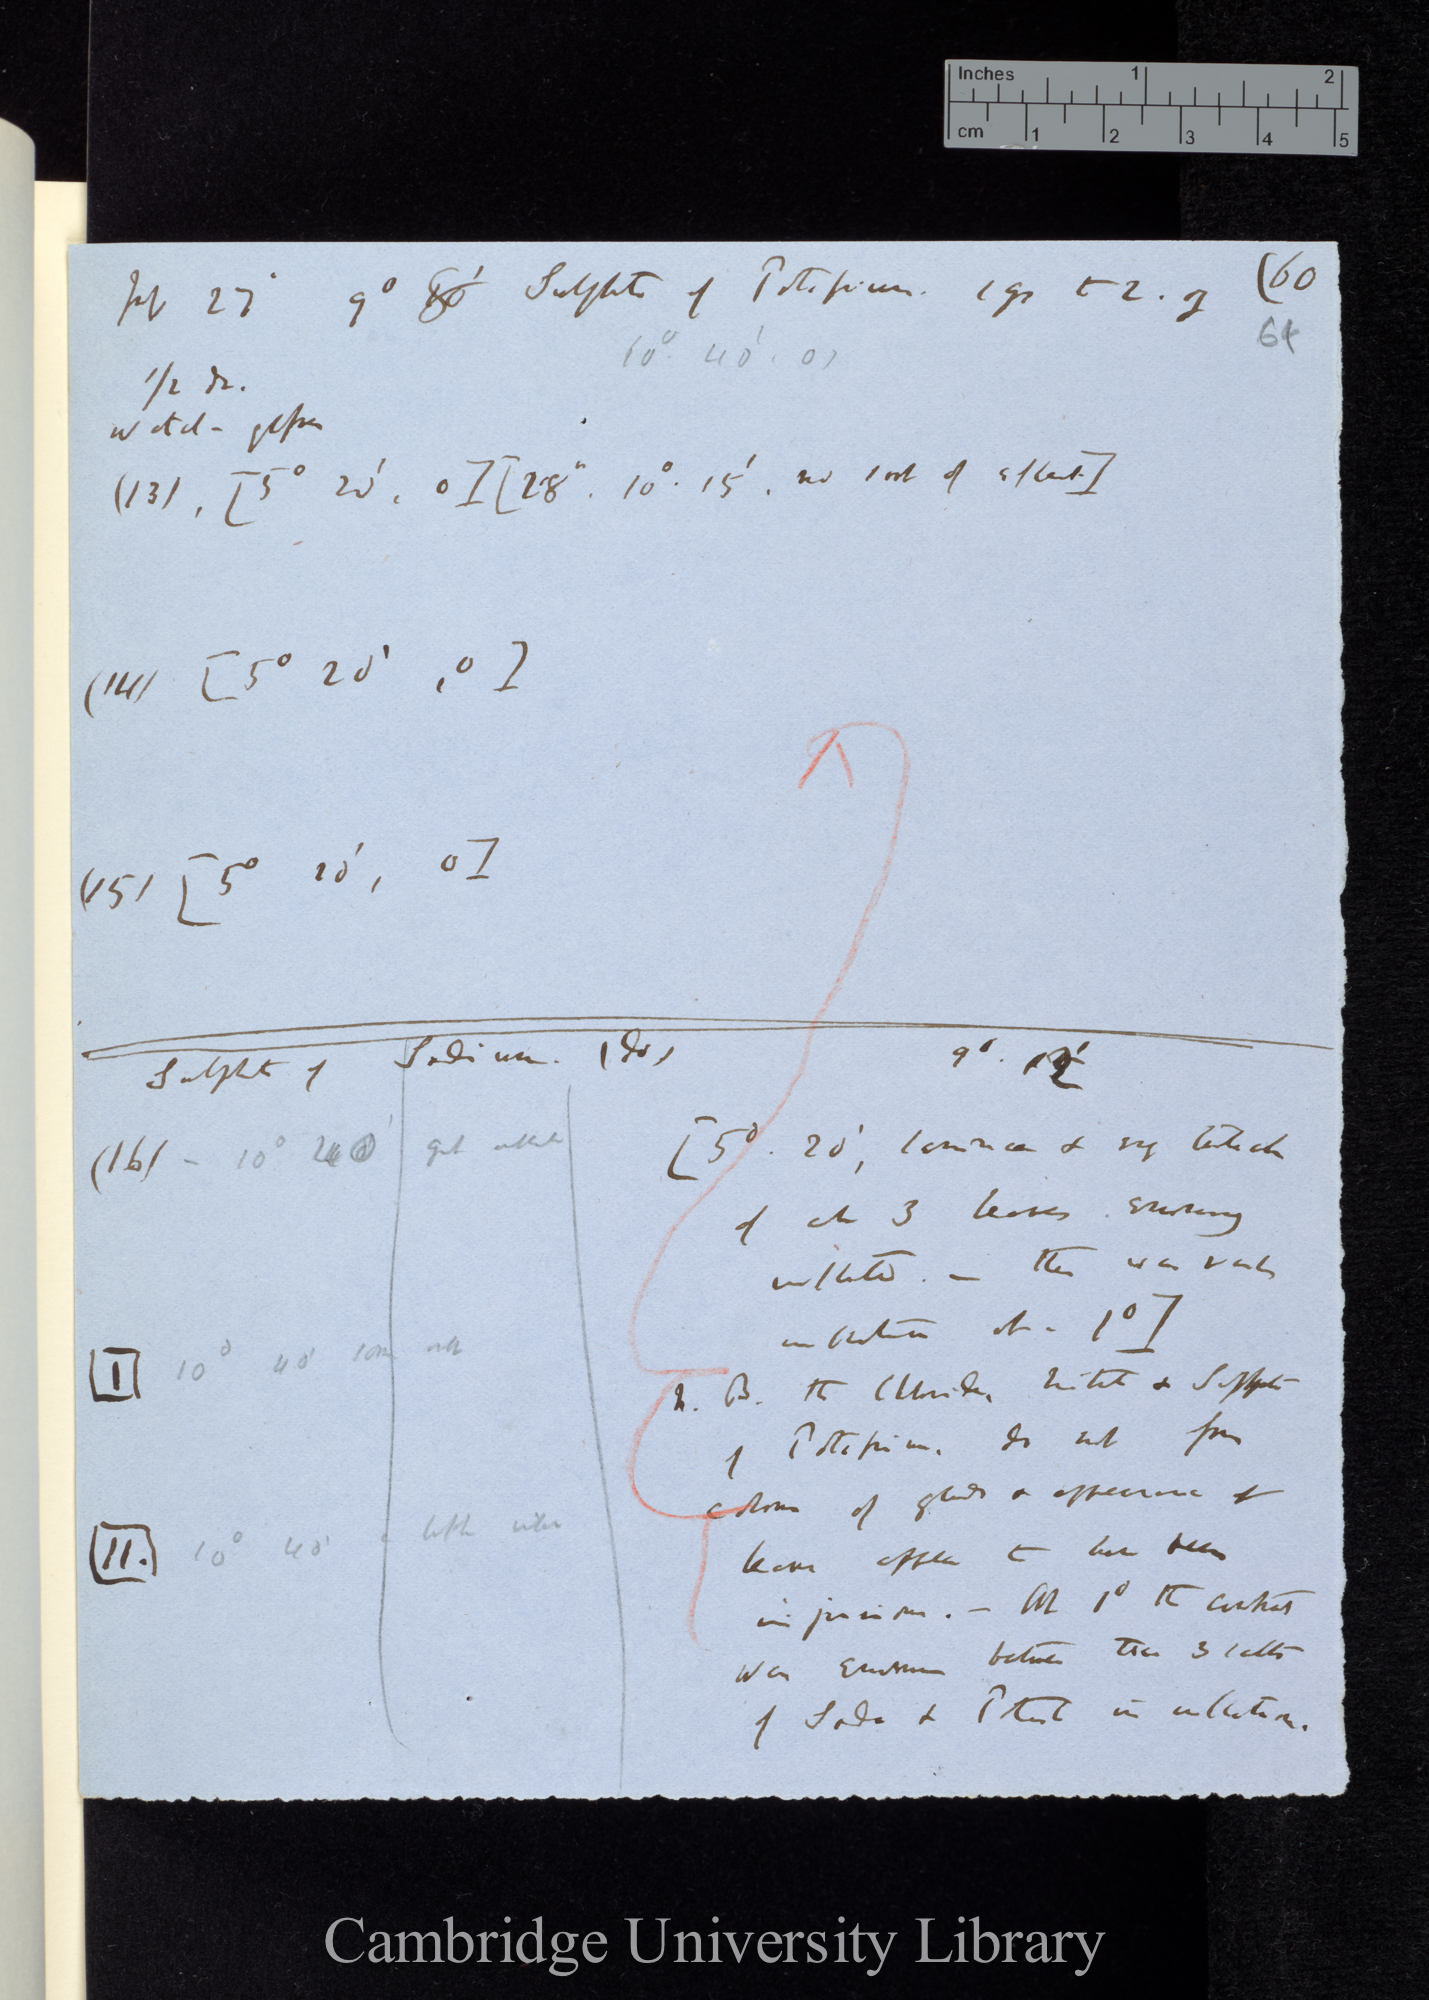 Inches 1 2
cm 1 2 3 4 5
27° 9° Sulphate of Potassium. 1 gr to 2. oz (60
10° 40' 0) 64
1/2 dr.
watch-glass
(13), [5° 20', 0] [28" 10° 15', no sort of effect]
(14) [5° 20', 0]
(15) [5° 20', 0]
Sulphate of Sodium. (do) 9°
(16) - 10°
[5° 20', laminæ & tentacles
of all 3 leaves
inflected. — there was
inflection at 1°]
I 10° 40' some
II. 10° 40' little
N. B. the Chloride, Nitrate & Sulphate
of Potassium, do not from
colour of glands & appearance of
leaves appear to have been
injurious. — At 1° the contrast
was enormous between these 3 salts
of Soda & Potash in inflection.
Cambridge University Library